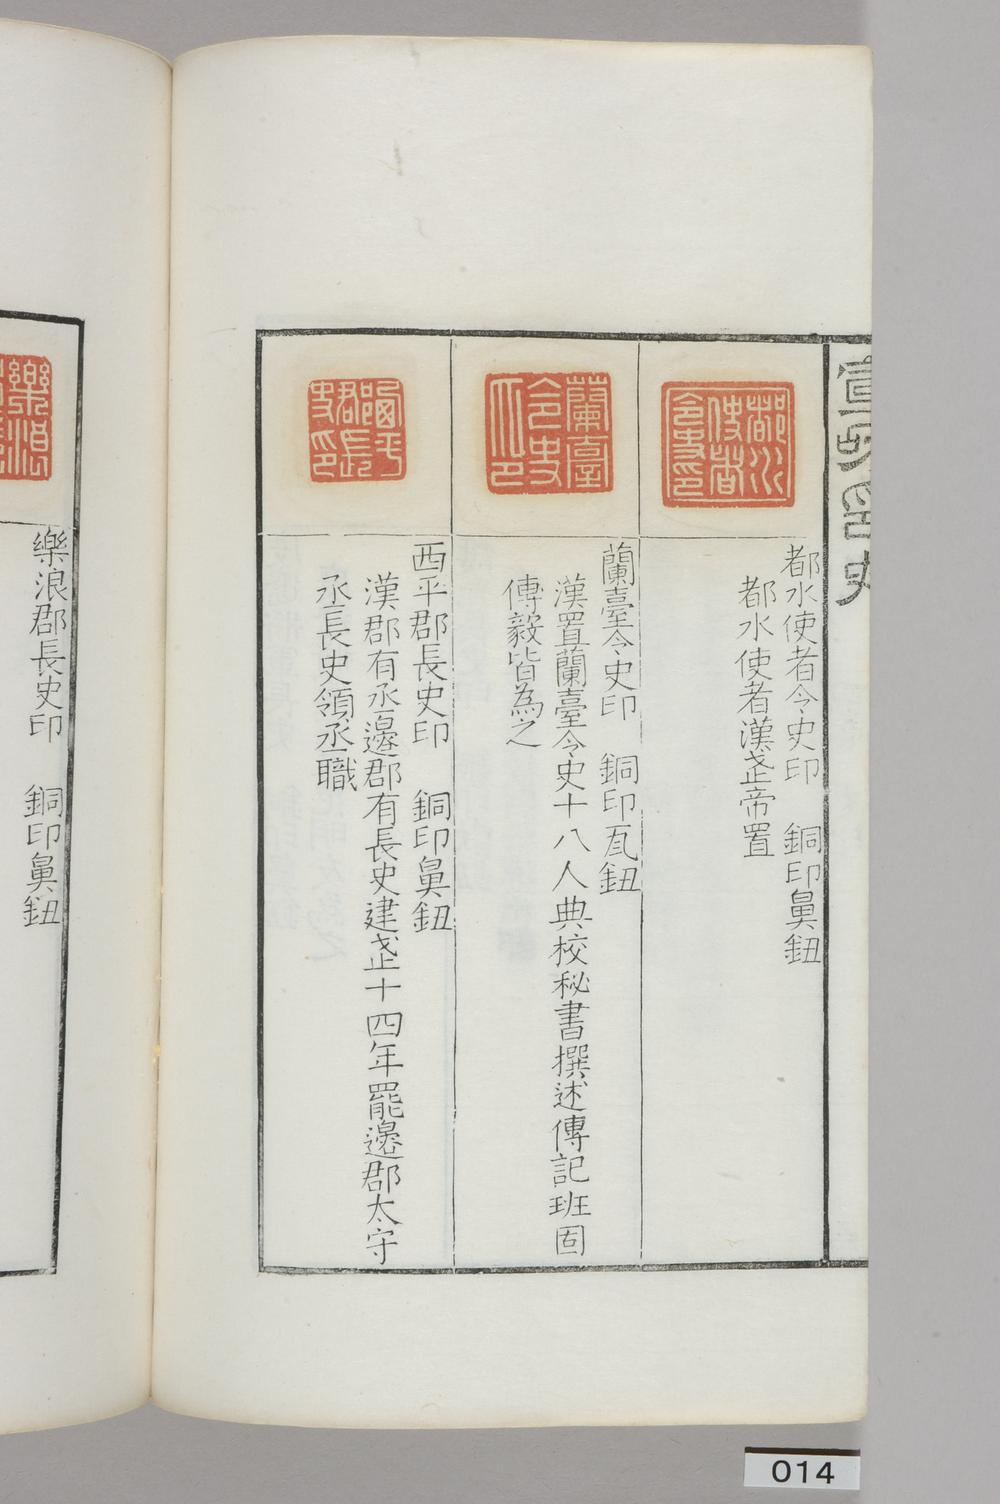 宣和印史
都水使者令史印　銅印鼻鈕
都水使者漢武帝置
蘭臺令史印　銅印瓦鈕
漢置蘭臺令史十八人典校秘書撰述傳記班固
傳毅皆為之
西平郡長史印　銅印鼻鈕
漢郡有丞邊郡有長史建武十四年罷邊郡太守
丞長史領丞職
樂浪郡長史印　銅印鼻鈕
都水使者令史印
蘭臺令史印
西平郡長史印
樂浪
014